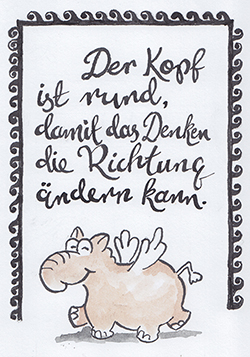 Der Kopf
ist rund,
damit das Denken
die Richtung
ändern kann.